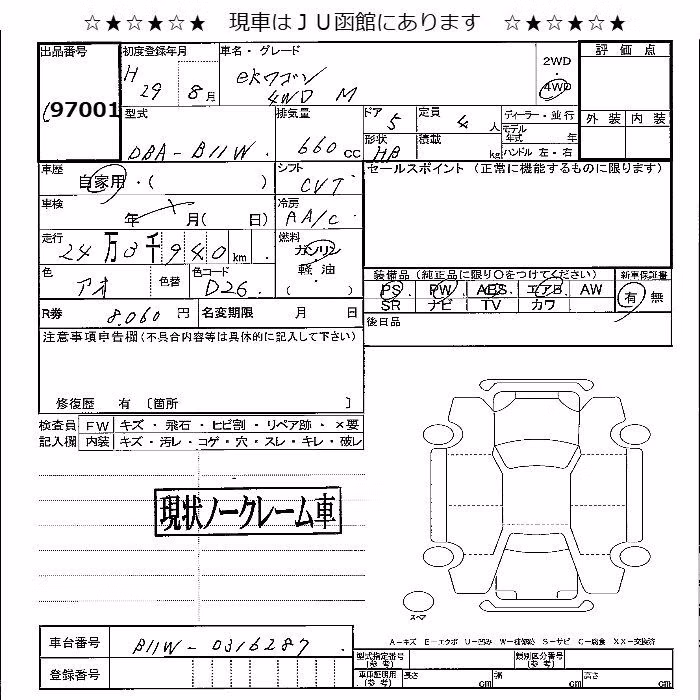 ☆★☆★☆★ 現車はＪＵ函館にあります ☆★☆★☆★
出品番号 初度登録年月 車名・グレード 評価点
97001 H 29 8月 eKワゴン 4WD M 2WD 4WD
外装 内装
型式 排気量 ドア 5 定員 4人 ディーラー・並行
DBA-B11W 660cc 形状 HB 積載 kg モデル年式 年
ハンドル 左・右
車歴 シフト セールスポイント (正常に機能するものに限ります)
自家用・( ) CVT
車検 冷房
年 月( 日) AA/C
走行 燃料
24万3千940km ガソリン
軽油
( )
色 色替 色コード 装備品 (純正品に限り○をつけてください) 新車保証書
アオ D26 PS PW ABS エアB AW 有 無
SR ナビ TV カワ
R券 8,060円 名変期限 月 日 後日品
注意事項申告欄(不具合内容等は具体的に記入して下さい)
修復歴 有 〔箇所 〕
検査員 FW キズ・飛石・ヒビ割・リペア跡・×要
記入欄 内装 キズ・汚レ・コゲ・穴・スレ・キレ・破レ
現状ノークレーム車
スペア
A-キズ E-エクボ U-凹み W-補修跡 S-サビ C-腐食 XX-交換済
車台番号 B11W-0316287
型式指定番号(参考) 類別区分番号(参考)
登録番号 車庫証明用(参考) 長さ cm 幅 cm 高さ cm